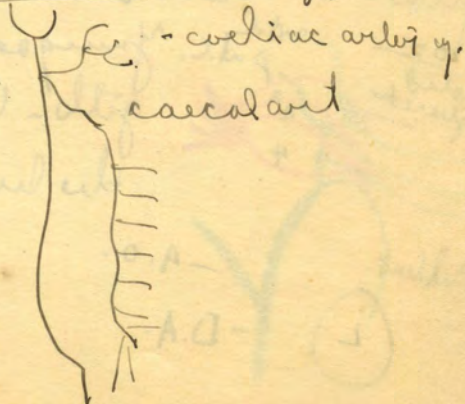 - coeliac artery.
caecal art